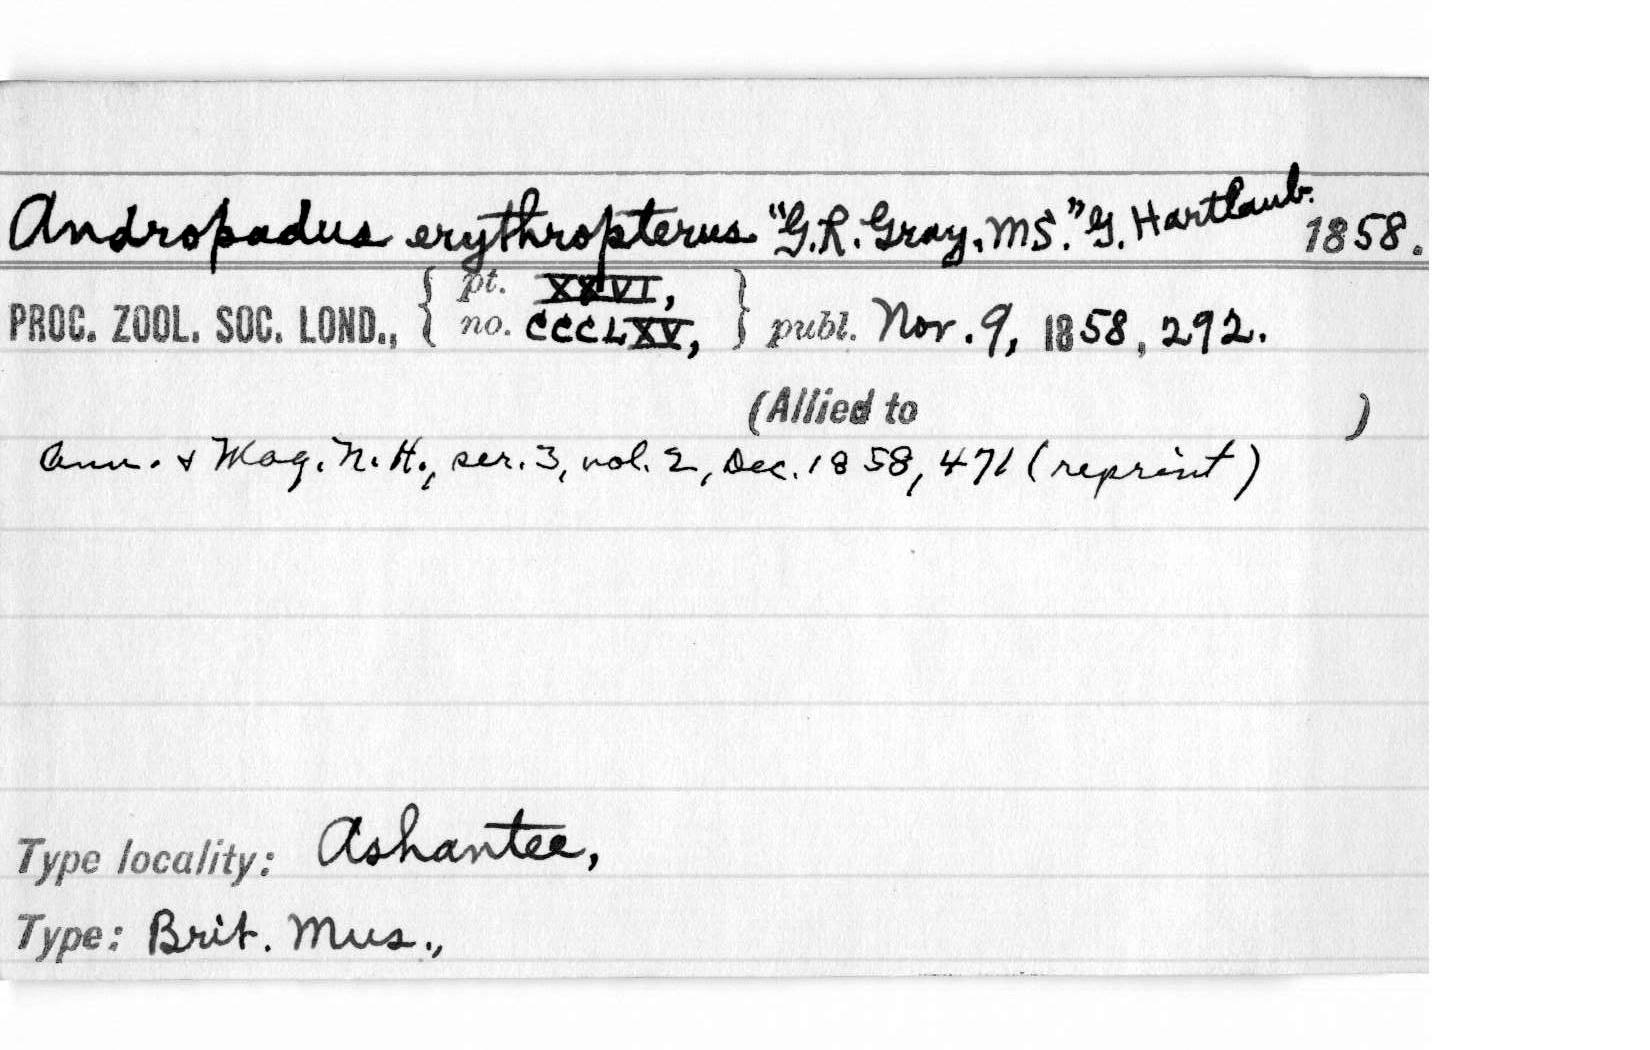 Andropadus erythropterus "G.R. Gray, MS." G. Hartlaub. 1858.
PROC. ZOOL. SOC. LOND., { pt. XXVI, no. CCCLXV, } publ. Nov. 9, 1858, 292.
(Allied to )
Ann. & Mag. N. H., ser. 3, vol. 2, Dec. 1858, 471 (reprint)
Type locality: Ashantee,
Type: Brit. Mus.,